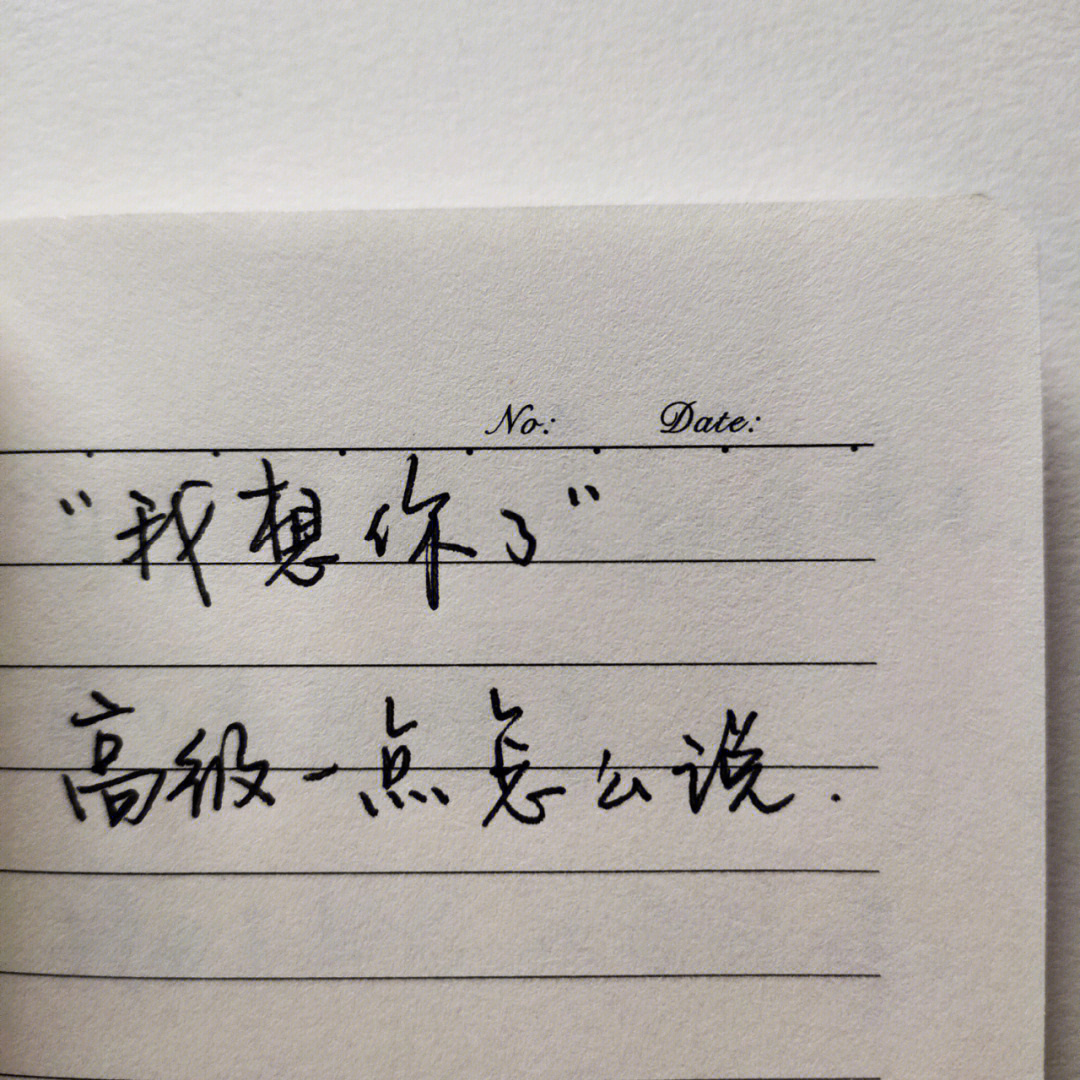 No: Date:
“我想你了”
高级一点怎么说.